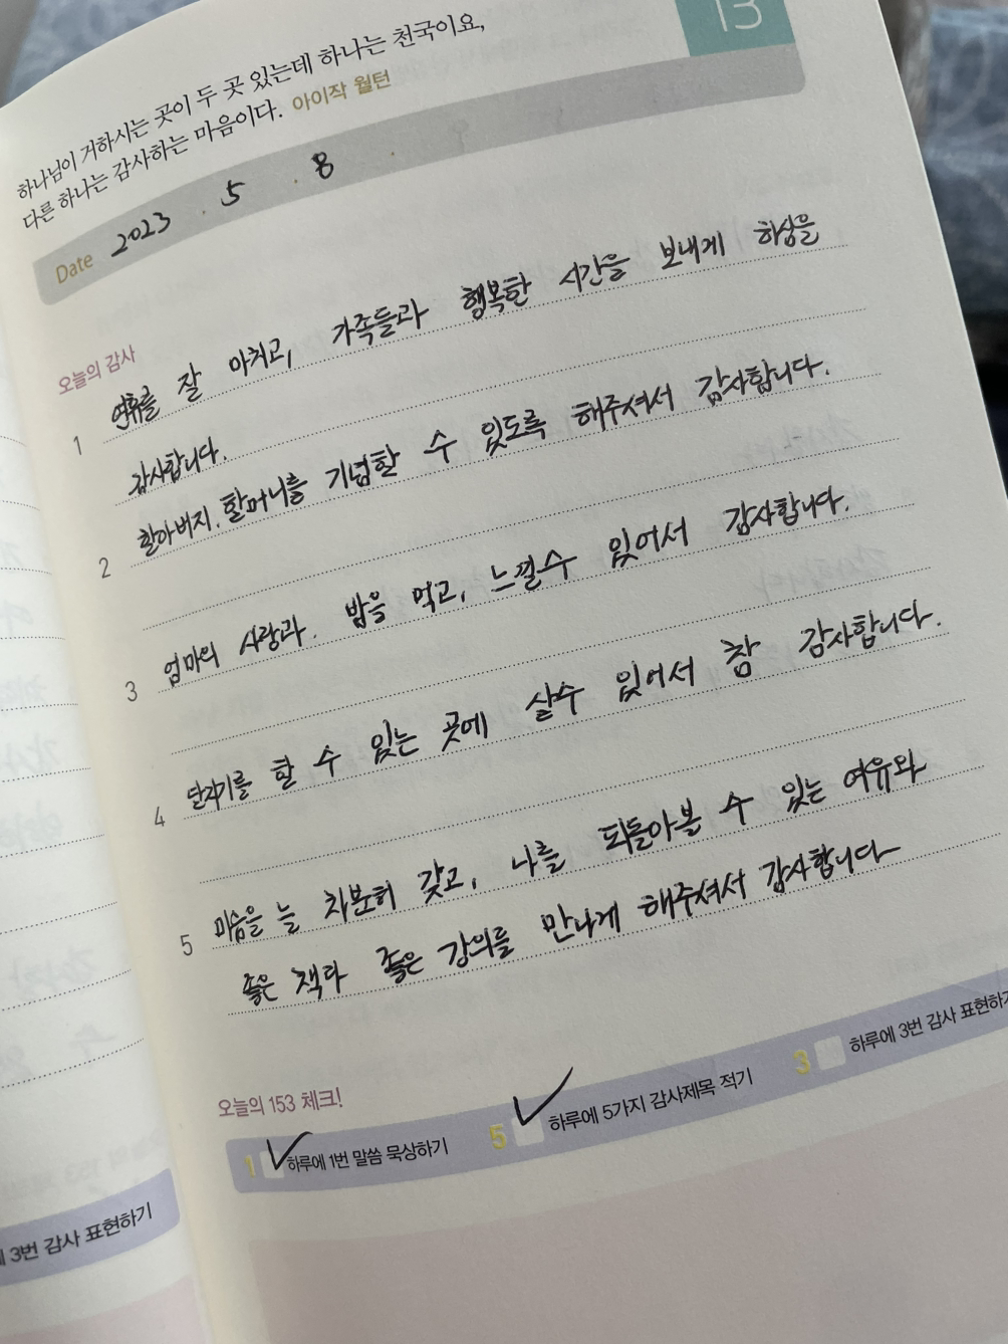 13
하나님이 거하시는 곳이 두 곳 있는데 하나는 천국이요,
다른 하나는 감사하는 마음이다. 아이작 월턴
Date 2023 . 5 . 8 .
오늘의 감사
1 연휴를 잘 마치고, 가족들과 행복한 시간을 보내게 하심을
감사합니다.
2 할아버지. 할머니를 기념할 수 있도록 해주셔서 감사합니다.
3 엄마의 사랑과. 밥을 먹고, 느낄수 있어서 감사합니다.
4 달리기를 할 수 있는 곳에 살수 있어서 참 감사합니다.
5 마음을 늘 차분히 갖고, 나를 되돌아볼 수 있는 여유와
좋은 책과 좋은 강의를 만나게 해주셔서 감사합니다
오늘의 153 체크!
1 하루에 1번 말씀 묵상하기 5 하루에 5가지 감사제목 적기 3 하루에 3번 감사 표현하기
3번 감사 표현하기